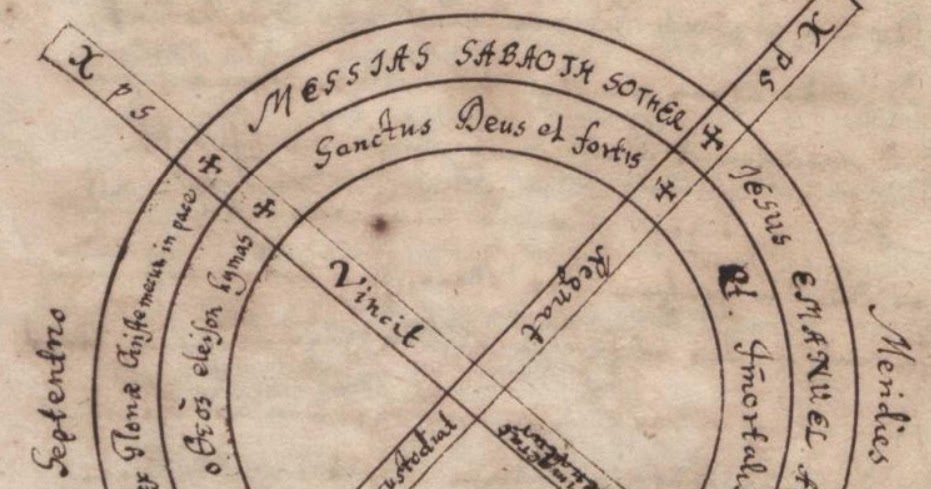 X p s
X p s
MESSIAS SABAOTH SOTHER
Sanctus Deus et fortis
JESUS EMANUEL
et. Jm̄ortal
Glonæ Christe in pace
o θεὸς eleison hymas
Vincit
Regnat
Septentrio
Meridies